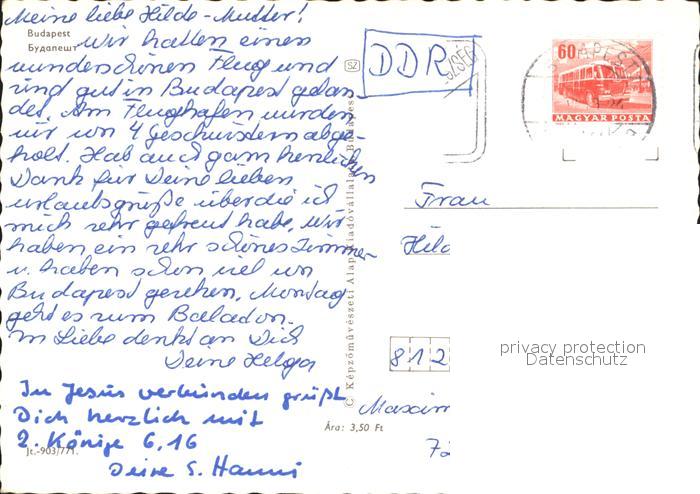 Meine liebe Hilde-Mutter!
Budapest
Будапешт
Wir hatten einen
wunderschönen Flug und
sind gut in Budapest gelan-
det. Am Flughafen wurden
wir von 4 Geschwistern abge-
holt. Hab auch ganz herzlichen
Dank für Deine lieben
Urlaubsgrüße über die ich
mich sehr gefreut habe. Wir
haben ein sehr schönes Zimmer
u. haben schon viel von
Budapest gesehen, Montag
geht es zum Balaton.
In Liebe denkt an Dich
Deine Helga
In Jesus verbunden grüßt
Dich herzlich mit
2. Könige 6,16
Jt.-903/771.
Deine S. Hanni
SZ
© Képzőművészeti Alap Kiadóvállalata, Budapest
Ára: 3,50 Ft
DDR
60
MAGYAR POSTA
Frau
Hild
812
Maxim
72
privacy protection
Datenschutz